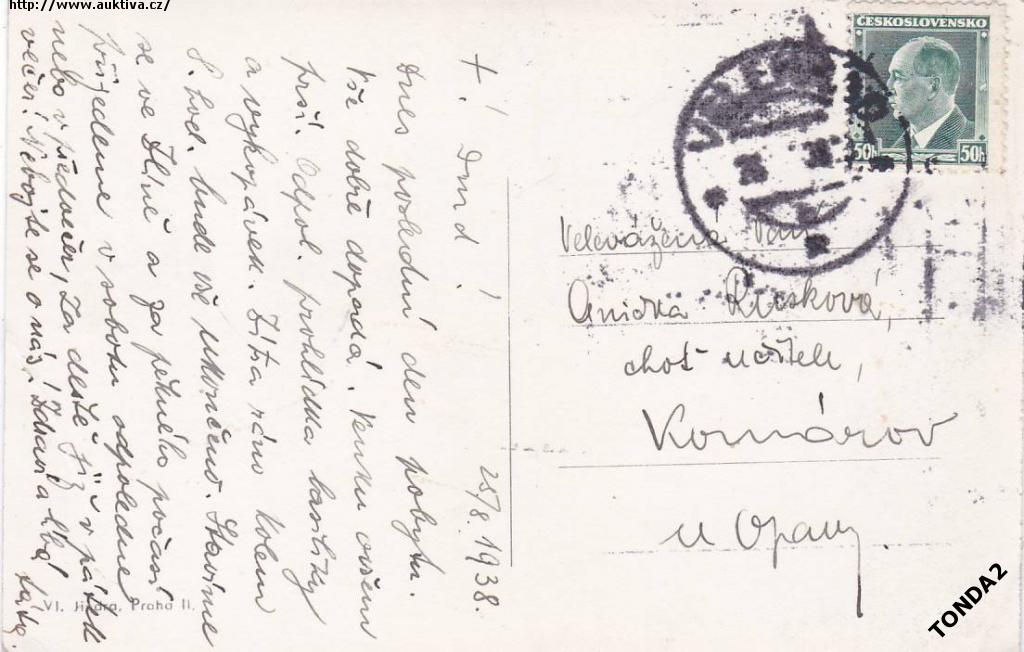 http://www.auktiva.cz/
ČESKOSLOVENSKO
50h 50h
25/8. 1938.
Dnes poslední den pobytu.
Vše dobře dopadá. Venku ovšem
prší. Odpol. prohlídka basiliky
a vykopávek. Zítra ráno kolem
8. hod. bude vše ukončeno. Stavíme
se ve Zlíně a za pěkného počasí
přijedeme v sobotu odpoledne
nebo v předvečer, za deště již v pátek
večer. Nebojte se o nás! Zdraví a líbá
táta.
Velevážená Paní
Anička Rusková,
choť učitele,
Komárov
u Opavy
Vl. Jindra, Praha II.
TONDA2